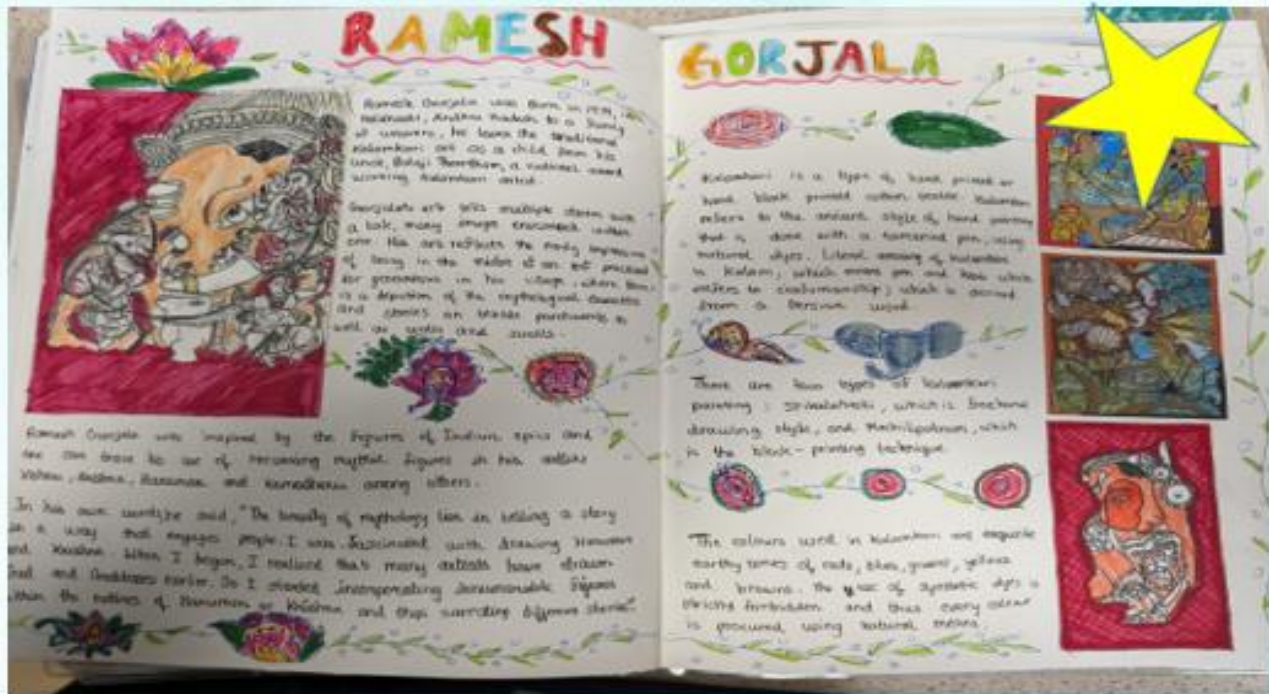 RAMESH
Ramesh Gorjala was Born in 1979, in
Andhra Pradesh to a family
of weavers, he learn the traditional
Kalamkari art as a child from his
uncle, Balaji a national award
working Kalamkari artist.
Gorjala's art tells multiple stories with
a look, many image within
one. His art reflects the
of being in the
for generations in his village, where there
is a depiction of the mythological
and stories on
well as and
Ramesh Gorjala was inspired by the figures of Indian epics and
one can his use of mythical figures in his
Vishnu, Krishna, Hanuman and Kamadhenu among others.
In his own words, he said, "The beauty of mythology lies in telling a story
in a way that engages people. I was fascinated with drawing Hanuman
and Krishna. When I began, I realized that many artists have drawn
God and Goddesses earlier. So I started incorporating figures
within the outlines of Hanuman or Krishna and thus narrating different stories."
GORJALA
Kalamkari is a type of hand printed or
hand block printed cotton textile. Kalamkari
refers to the ancient style of hand painting
that is done with a tamarind pen, using
natural dyes. Literal meaning of Kalamkari
is Kalam, which means pen and kari which
refers to craftsmanship, which is derived
from a Persian word.
There are two types of Kalamkari
painting: Srikalahasti, which is freehand
drawing style, and Machilipatnam, which
is the block-printing technique.
The colours used in Kalamkari are exquisite
earthy tones of reds, blues, greens, yellows
and browns. The use of synthetic dyes is
strictly forbidden and thus every colour
is procured using natural means.